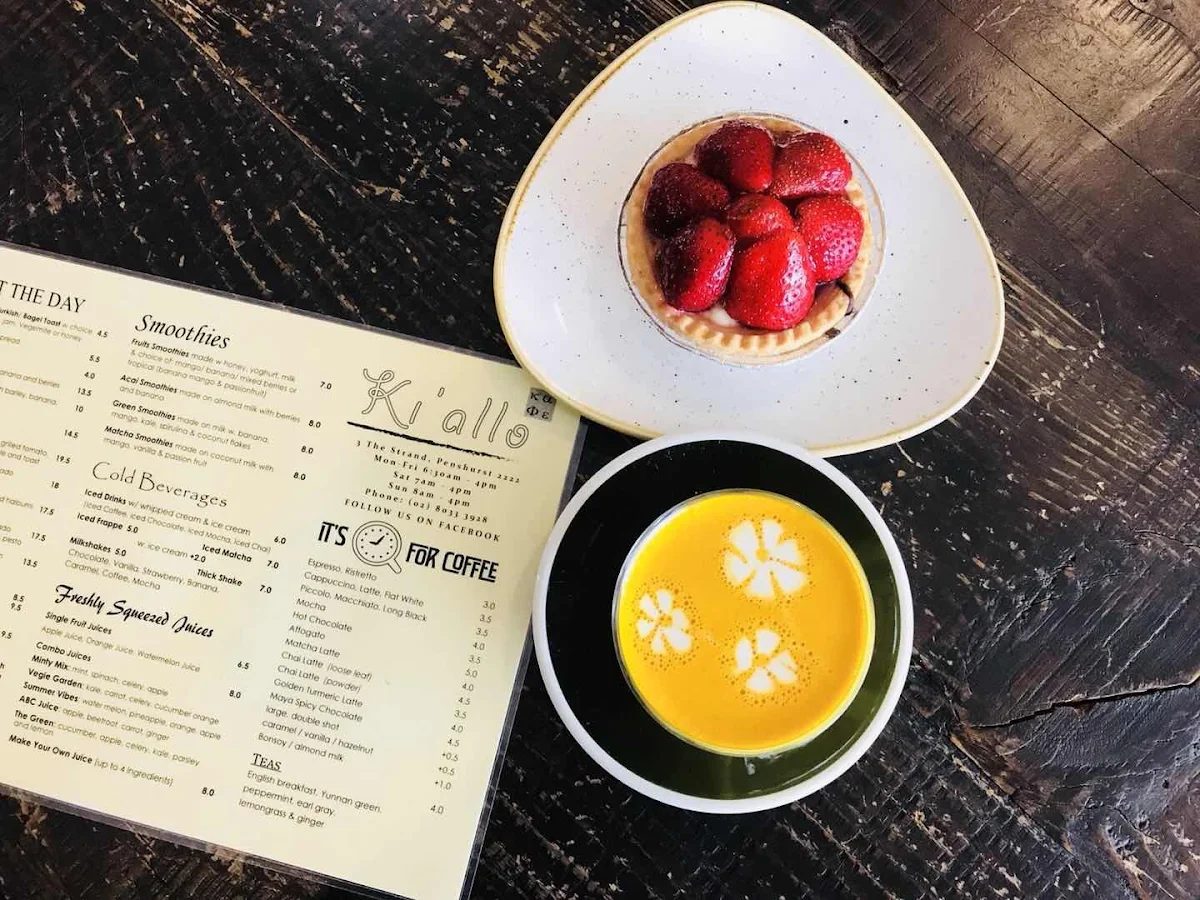 T THE DAY
Turkish/ Bagel Toast w choice
jam, Vegemite or honey 4.5
spread
5.5
4.0
banana and berries 13.5
barley, banana, 10
14.5
grilled tomato,
and toast 19.5
18
17.5
17.5
pesto
13.5
8.5
9.5
9.5
Smoothies
Fruits Smoothies made w honey, yoghurt, milk
& choice of: mango/ banana/ mixed berries or
tropical (banana mango & passionfruit) 7.0
Acai Smoothies made on almond milk with berries
and banana 8.0
Green Smoothies made on milk w. banana,
mango, kale, spirulina & coconut flakes 8.0
Matcha Smoothies made on coconut milk with
mango, vanilla & passion fruit 8.0
Cold Beverages
Iced Drinks w/ whipped cream & ice cream 6.0
(Iced Coffee, Iced Chocolate, Iced Mocha, Iced Chai)
Iced Frappe 5.0 Iced Matcha 7.0
w. ice cream +2.0
Milkshakes 5.0 Thick Shake 7.0
Chocolate, Vanilla, Strawberry, Banana,
Caramel, Coffee, Mocha
Freshly Squeezed Juices
Single Fruit Juices
Apple Juice, Orange Juice, Watermelon Juice 6.5
Combo Juices 8.0
Minty Mix: mint, spinach, celery, apple
Vegie Garden: kale, carrot, celery, cucumber orange
Summer Vibes: water melon, pineapple, orange, apple
ABC Juice: apple, beetroot, carrot, ginger
The Green: cucumber, apple, celery, kale, parsley
and lemon
Make Your Own Juice (up to 4 ingredients) 8.0
Ki'allo
κα
φε
3 The Strand, Penshurst 2222
Mon-Fri 6:30am - 4pm
Sat 7am - 4pm
Sun 8am - 4pm
Phone: (02) 8033 3928
FOLLOW US ON FACEBOOK
IT'S FOR COFFEE
Espresso, Ristretto 3.0
Cappuccino, Latte, Flat White 3.5
Piccolo, Macchiato, Long Black 3.5
Mocha 4.0
Hot Chocolate 3.5
Affogato 5.0
Matcha Latte 4.0
Chai Latte (loose leaf) 4.5
Chai Latte (powder) 3.5
Golden Turmeric Latte 4.0
Maya Spicy Chocolate 4.5
large, double shot +0.5
caramel / vanilla / hazelnut +0.5
Bonsoy / almond milk +1.0
TEAS
English breakfast, Yunnan green, 4.0
peppermint, earl gray,
lemongrass & ginger